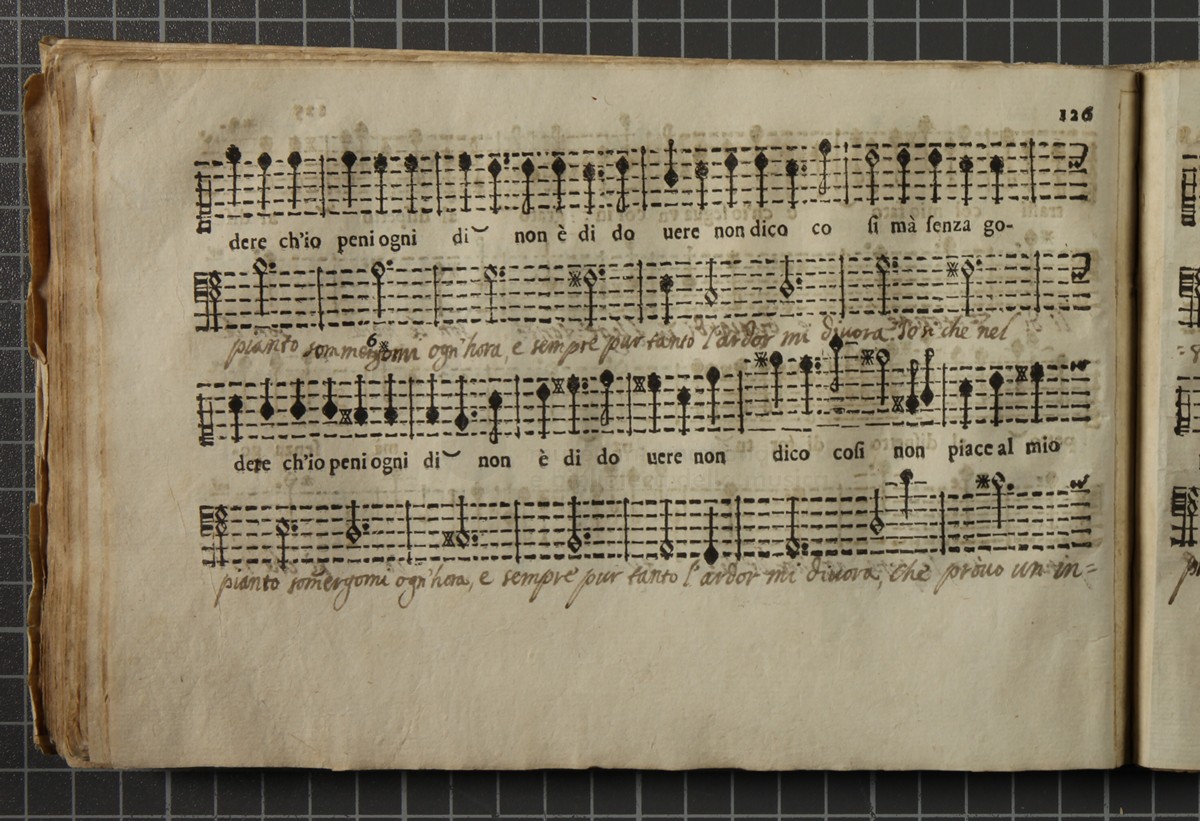 126
dere ch'io peni ogni di non è di do uere non dico co si mà senza go-
pianto sommergomi ogn'hora, e sempre pur tanto l'ardor mi diuora. Io sì che nel
6
dere ch'io peni ogni di non è di do uere non dico cosi non piace al mio
pianto somergomi ogn'hora, e sempre pur tanto l'ardor mi diuora, che prouo un in=